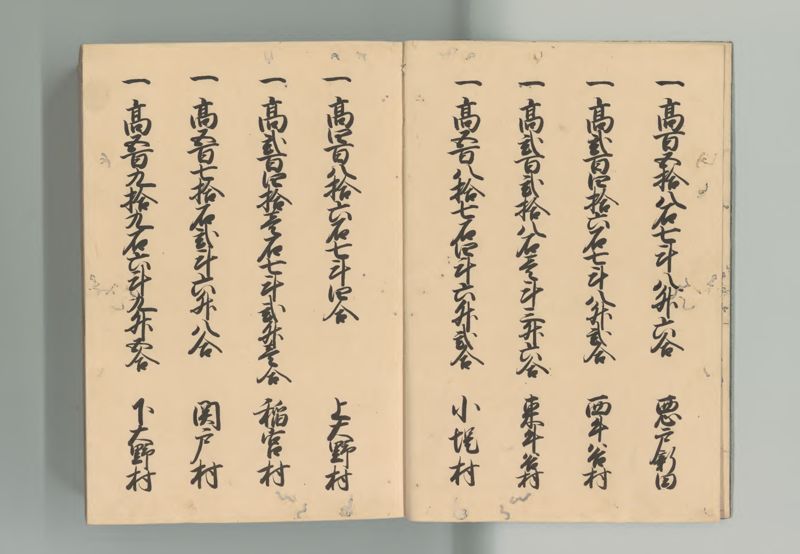 一 高百五拾八石七斗八升六合 悪戸新田
一 高弐百四拾六石七斗八升弐合 西牛谷村
一 高弐百弐拾八石壱斗三升六合 東牛谷村
一 高五百八拾七石四斗六升弐合 小堤村
一 高四百八拾六石七斗四合 上大野村
一 高弐百四拾壱石七斗弐升壱合 稲宮村
一 高五百七拾石弐斗六升八合 関戸村
一 高五百九拾九石六斗九升四合 下大野村